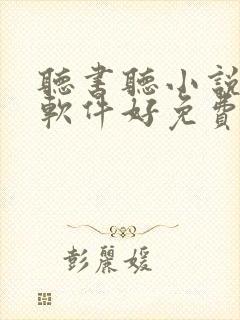 聽書聽小說
軟件好免費
彭麗媛